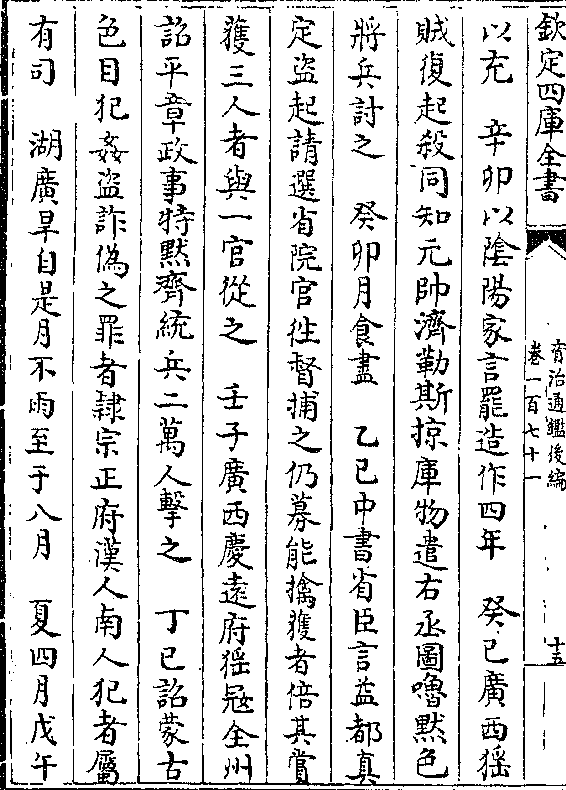 欽定四庫全書
資治通鑑後編
卷一百七十一
十五
以充　辛卯以陰陽家言罷造作四年　癸巳廣西猺
賊復起殺同知元帥濟勒斯掠庫物遣右丞圖嚕默色
將兵討之　癸卯月食盡　乙巳中書省臣言益都真
定盜起請選省院官徃督捕之仍募能擒獲者倍其賞
獲三人者與一官從之　壬子廣西慶遠府猺冦全州
詔平章政事特黙齊統兵二萬人擊之　丁巳詔蒙古
色目犯姦盜詐偽之罪者隷宗正府漢人南人犯者屬
有司　湖廣旱自是月不雨至于八月　夏四月戊午